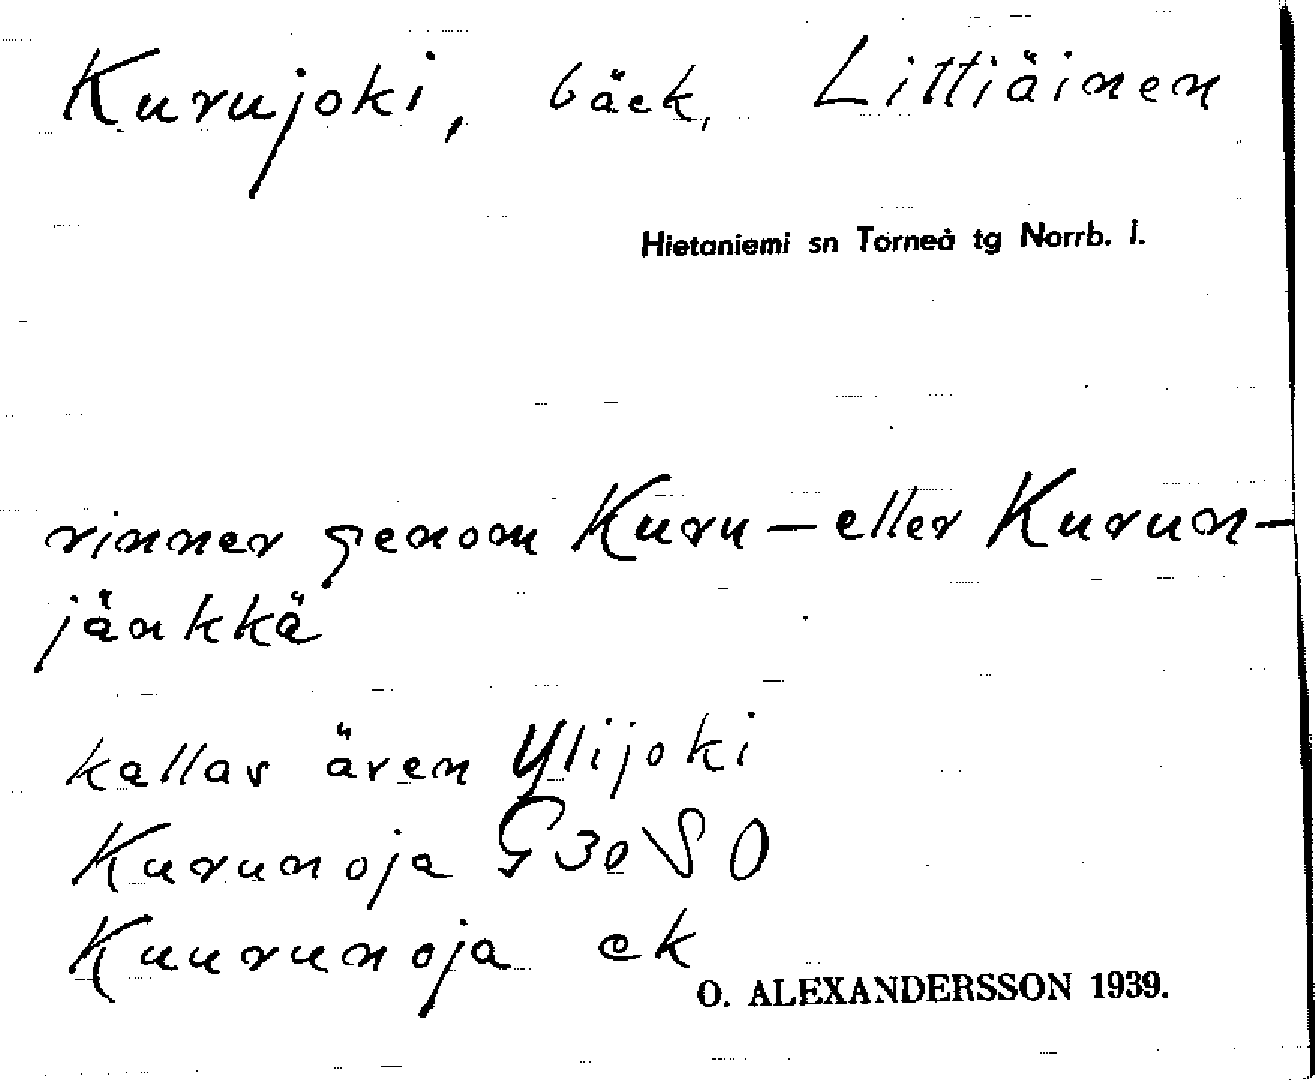 Kurujoki, bäck, Littiäinen
Hietaniemi sn Torneå tg Norrb. l.
rinner genom Kuru- eller Kurun-
jänkkä
kallas även Ylijoki
Kurunoja G30SO
Kuurunoja ek
O. ALEXANDERSSON 1939.